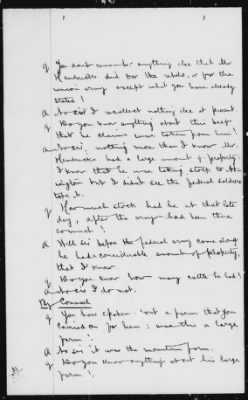 q You dont remember anything else that Mr.
Hendricks did for the rebels, or for the
union army except what you have already
stated?
a No sir I recollect nothing else at present.
q Do you know anything about this beef
that he claims was taken from him?
a No sir; nothing more than I know Mr.
Hendricks had a large amount of property.
I know that he was taking stock to
but I didn't see the federal soldiers
take it.
q How much stock had he at that late
day, after the army had been there
so much?
a Well sir before the federal army came along
he had a considerable amount of property,
that I know.
q Do you know how many cattle he had?
a No sir I do not.
By Counsel
q You have spoken of a farm that you
carried on for him; was this a large
farm?
a No sir it was the mountain farm.
q Do you know anything about his large
farm?